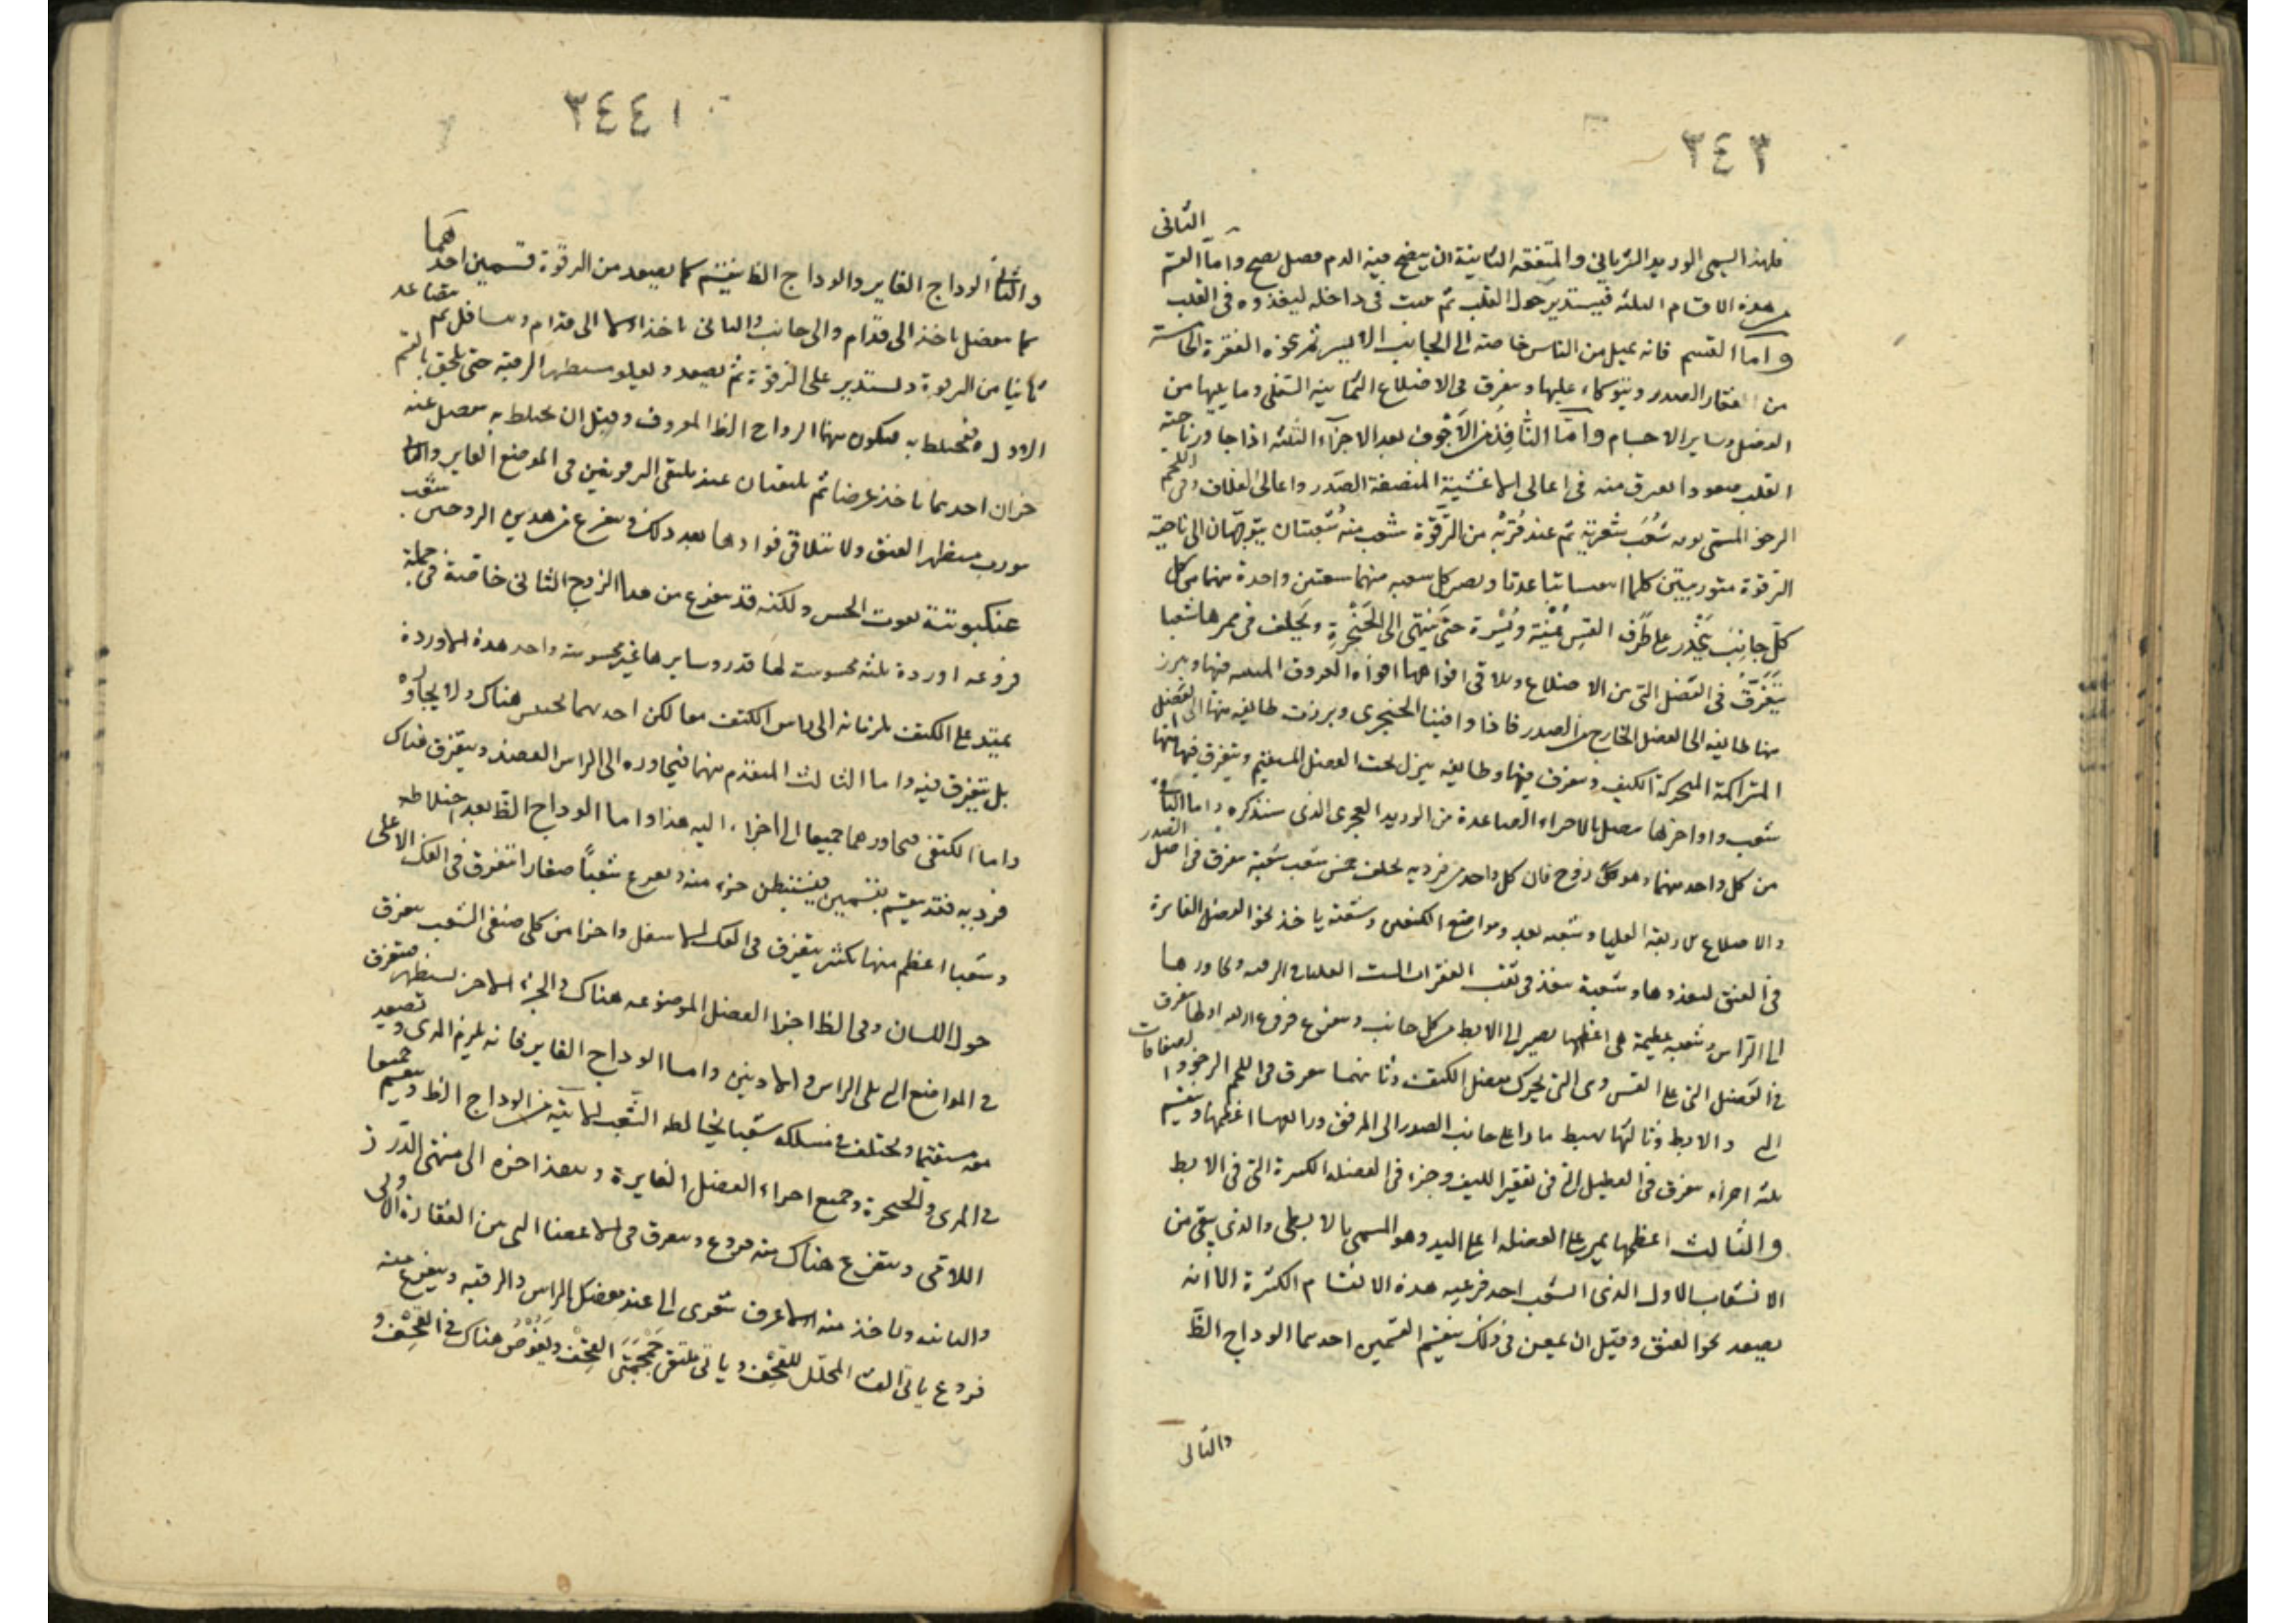 ٣٤٣
الثانى
فلهذا السمى الوريد الشريانى والمنفعة الثانية ان ينضج فيه الدم فضل نضج واما القسم
من هذه الاقسام الثلثه فيستدير حول القلب ثم فى داخله ليغذوه فى القلب
واما القسم فانه يميل من الناس خاصته الى الجانب الايسر ثم نحو الفقرة الخامسة
من فقار الصدر ويتوكاء عليها ويتفرق فى الاضلاع الثمانية السفلى وما يليها من
العضل وساير الاجسام واما النافذ من الاجوف بعد الاجزاء الثلثه اذا جاوز ناحية
القلب صعودا تفرق منه فى اعالى الاغشية المنصفة الصدر واعالى الغلاف وفى اللحم
الرخو المسمى شعب شعرية ثم عند قربه من الترقوة شعب منه شعبتان يتوجهان الى ناحية
الترقوة متوربتين كلما تباعدتا وتصير كل شعبه منهما شعبتين واحدة منهما من كل
كل جانب ينحدر على طرف القس يمنة ويسرة حتى ينتهى الى الحنجرة ويخلف فى ممرها شعبا
يتفرق فى العضل التى بين الاضلاع وتلاقى افواهها افواه العروق المنبثه فيها ويبرز
منها طايفه الى العضل الخارج من الصدر فاذا وافينا الحنجرى وبرزت طايفه منها الى العضل
المتراكمة المحركة الكتف ويتفرق فيها وطايفه ينزل تحت العضل المستقيم ويتفرق فيها منها
شعب واواخرها متصل بالاجزاء الصاعدة من الوريد العجزى الذى سنذكره واما الثانى
من كل واحد منهما وهو كل زوج فان كل واحد من فرديه يخلف خمس شعب شعبة يتفرق فى الصدر
والاضلاع الاربعه العليا وشعبه يعد ومواضع الكتفين وشعبة ياخذ نحو العضل الغايرة
فى العنق ليغذوها وشعبة ينفذ فى ثقب الفقرات الست العليا فى الرقبه وتجاورها
الى الراس وشعبة عظيمة هى اعظمها يصير الى الابط من كل جانب ويتفرع فروع اربعه اولها يتفرق
فى العضل التى على القس وهى التى تحرك مفصل الكتف وثانيهما يتفرق فى اللحم الرخو والصفاقات
الى والابط وثالثها يهبط مارا على جانب الصدر الى المرفق ورابعها اعظمها وينقسم
ثلثه اجزاء يتفرق فى العضل التى فى تقعير الكتف وجزء فى العضلة الكبيرة التى فى الابط
والثالث اعظمها يمر على العضله على اليد وهو المسمى بالابطى والذى يبقى من
الانشعاب الاول الذى انشعب احد فرعيه هذه الاقسام الكثيرة الا انه
يصعد نحو العنق وقبل ان يمعن فى ذلك ينقسم القسمين احدهما الوداج الظ
والثانى
٣٤٤
والثانى الوداج الغاير والوداج الظ ينقسم كما يصعد من الترقوة قسمين احدهما
كما ينفصل ياخذ الى قدام والى جانب والثانى ياخذ اولا الى قدام ويتسافل ثم يتصاعد
ثانيا من الترقوة ويستدير على الترقوة ثم يصعد ويعلو مستظهر الرقبة حتى يلحق بالقسم
الاول فيختلط به فيكون منهما الوداج الظ المعروف وقبل ان يختلط به ينفصل عنه
جزان احدهما ياخذ عرضا ثم يلتقيان عند ملتقى الترقوتين فى الموضع الغاير والثانى
يتورب مستظهر العنق ولا يتلاقى فرداها بعد ذلك ويتفرع من هذين الزوجين شعب
عنكبوتية تفوت الحس ولكنه قد يتفرع من هذا الزوج الثانى خاصة فى جملة
فروعه اوردة ثلثه محسوسة لها قدر وسايرها غير محسوسة واحد هذه الاوردة
يمتد على الكتف يلزمانه الى راس الكتف معا لكن احدهما يحتبس هناك ولا يجاوزه
بل يتفرق فيه واما الثالث المتقدم منهما فيجاوزه الى الراس العضد ويتفرق هناك
واما الكتفى فيجاورهما جميعا الى اجزاء اليه هذا واما الوداج الظ بعد اختلاط
فرديه فقد ينقسم بقسمين فيستبطن جزء منه ويفرع شعبا صغارا يتفرق فى الفك الاعلى
وشعبا اعظم منها بكثير يتفرق فى الفك الاسفل واجزا من كلى صنفى الشعب يتفرق
حول اللسان وفى الظ اجزا العضل الموضوعه هناك والجزء الاخر يستظهر متفرق
فى المواضع التى يلى الراس والاذنين واما الوداج الغاير فانه يلزم المرى وتصعد
معه مستقيما ويخلف فى مسلكه شعبا يخالطه الشعب الاتية من الوداج الظ وينقسم جميعا
فى المرى والحنجرة وجميع اجزاء العضل الغايرة وينفذ اخره الى منتهى الدرز
اللامى ويتفرع هناك منه فروع ويتفرق فى الاعضا التى بين الفقارة الاولى
والثانيه وياخذ منه عرق شعرى الى عند مفصل الراس والرقبه ويتفرع منه
فروع ياتى الغشا المجلل للقحف وياتى ملتقى جمجمتى القحف ويغوص هناك فى القحف و